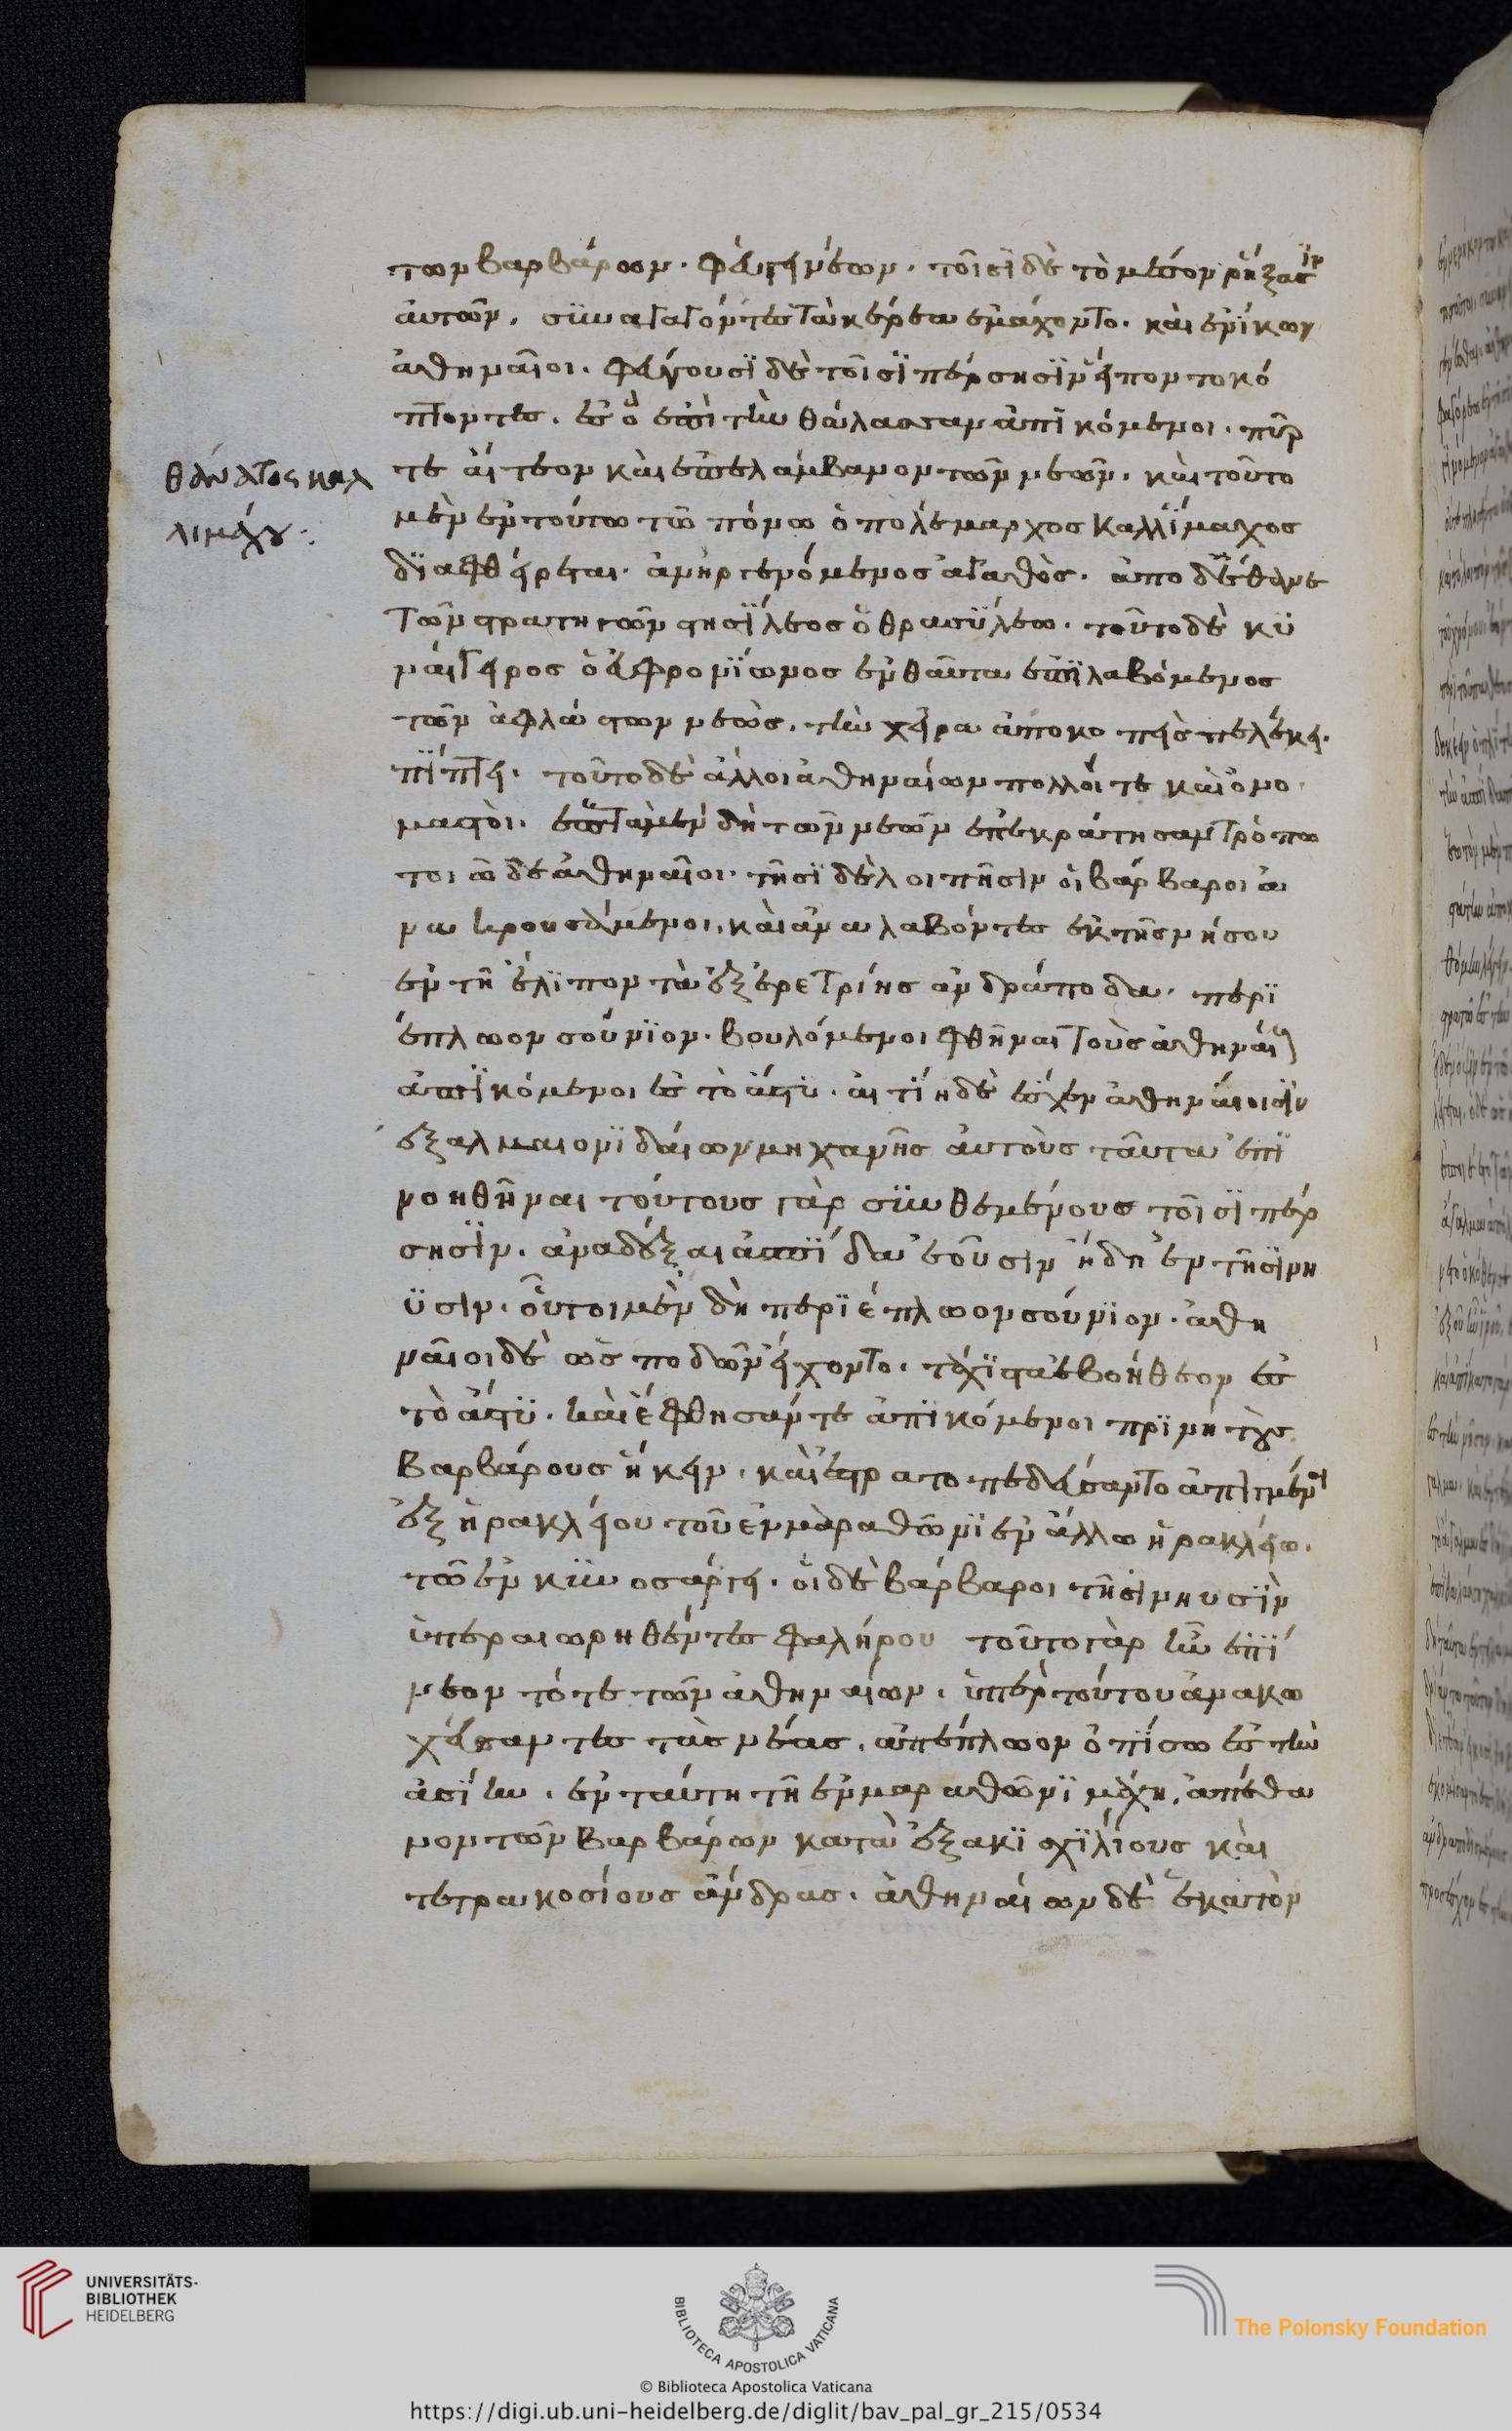 τῶν βαρβάρων. φεύγειν ἔων. τοῖσι δὲ τὸ μέσον ῥήξασιν
αὐτῶν. συναγαγόντες τὰ κέρεα ἐμάχοντο. καὶ ἐνίκων
ἀθηναῖοι. φεύγουσι δὲ τοῖσι πέρσησιν εἵποντο κό
πτοντες. ἐς ὃ ἐπὶ τὴν θάλασσαν ἀπικόμενοι. πῦρ
θάνατος καλ
λιμάχου:
τε αἴτεον καὶ ἐπελάμβανον τῶν νεῶν. καὶ τοῦτο
μὲν ἐν τούτω τῶ πόνω ὁ πολέμαρχος καλλίμαχος
διαφθείρεται. ἀνὴρ γενόμενος ἀγαθὸς. ἀπὸ δ' ἔθανε
τῶν στρατηγῶν στησίλεος ὁ θρασύλεω. τοῦτο δὲ κυ
ναίγειρος ὁ εὐφρονίωνος ἐνθαῦτα ἐπιλαβόμενος
τῶν ἀφλάστων νεὼς. τὴν χεῖρα ἀποκοπεὶς πελέκει.
πίπτει. τοῦτο δὲ ἄλλοι ἀθηναίων πολλοί τε καὶ ὀνο
μαστοὶ. ἑπτὰ μὲν δὴ τῶν νεῶν ἐπεκράτησαν τρόπω
τοιῶδε ἀθηναῖοι. τῆσι δὲ λοιπῆσιν οἱ βάρβαροι ἀ
νακρουσάμενοι. καὶ ἀναλαβόντες ἐκ τῆς νήσου
ἐν τῆ ἔλιπον τὰ ἐξ ἐρετρίης ἀνδράποδα. περι
έπλωον σούνιον. βουλόμενοι φθῆναι τοὺς ἀθηναίους
ἀπικόμενοι ἐς τὸ ἄστυ. αἰτίη δὲ ἔσχεν ἀθηναίοισιν
ἐξ ἀλκμαιονιδαίων μηχανῆς αὐτοὺς ταῦτα ἐπι
νοηθῆναι τούτους γὰρ συνθεμένους τοῖσι πέρ
σησιν. ἀναδέξαι ἀσπίδα ἐοῦσιν ἤδη ἐν τῆσι νη
υσίν. οὗτοι μὲν δὴ περιέπλωον σούνιον. ἀθη
ναῖοι δὲ ὡς ποδῶν εἶχοντο. τάχιστα ἐβοήθεον ἐς
τὸ ἄστυ. καὶ ἔφθησάν τε ἀπικόμενοι πρὶν ἢ τοὺς
βαρβάρους ἥκειν. καὶ ἐστρατοπεδεύσαντο ἀπιγμένοι
ἐξ ἡρακλείου τοῦ ἐν μαραθῶνι ἐν ἄλλω ἡρακλείω.
τῶ ἐν κυνοσάργει. οἱ δὲ βάρβαροι τῆσι νηυσὶν
ὑπεραιωρηθέντες φαλήρου τοῦτο γὰρ ἦν ἐπί
νεον τότε τῶν ἀθηναίων. ὑπὲρ τούτου ἀνακω
χεύσαντες τὰς νέας. ἀπέπλωον ὀπίσω ἐς τὴν
ἀσίην. ἐν ταύτη τῆ ἐν μαραθῶνι μάχη. ἀπέθα
νον τῶν βαρβάρων κατὰ ἑξακισχιλίους καὶ
τετρακοσίους ἄνδρας. ἀθηναίων δὲ ἑκατὸν
UNIVERSITÄTS-
BIBLIOTHEK
HEIDELBERG
BIBLIOTECA APOSTOLICA VATICANA
The Polonsky Foundation
© Biblioteca Apostolica Vaticana
https://digi.ub.uni-heidelberg.de/diglit/bav_pal_gr_215/0534